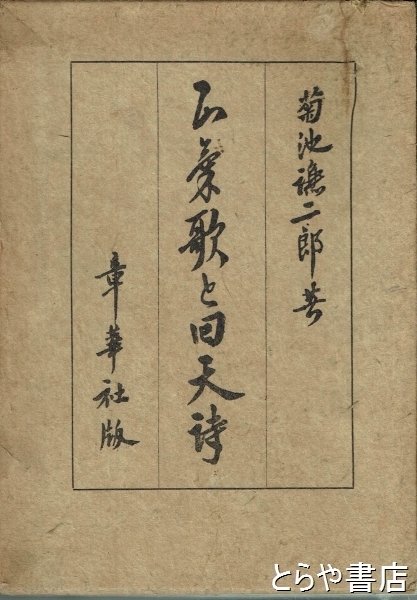 菊池謙二郎著
正気歌と回天詩
章華社版
とらや書店